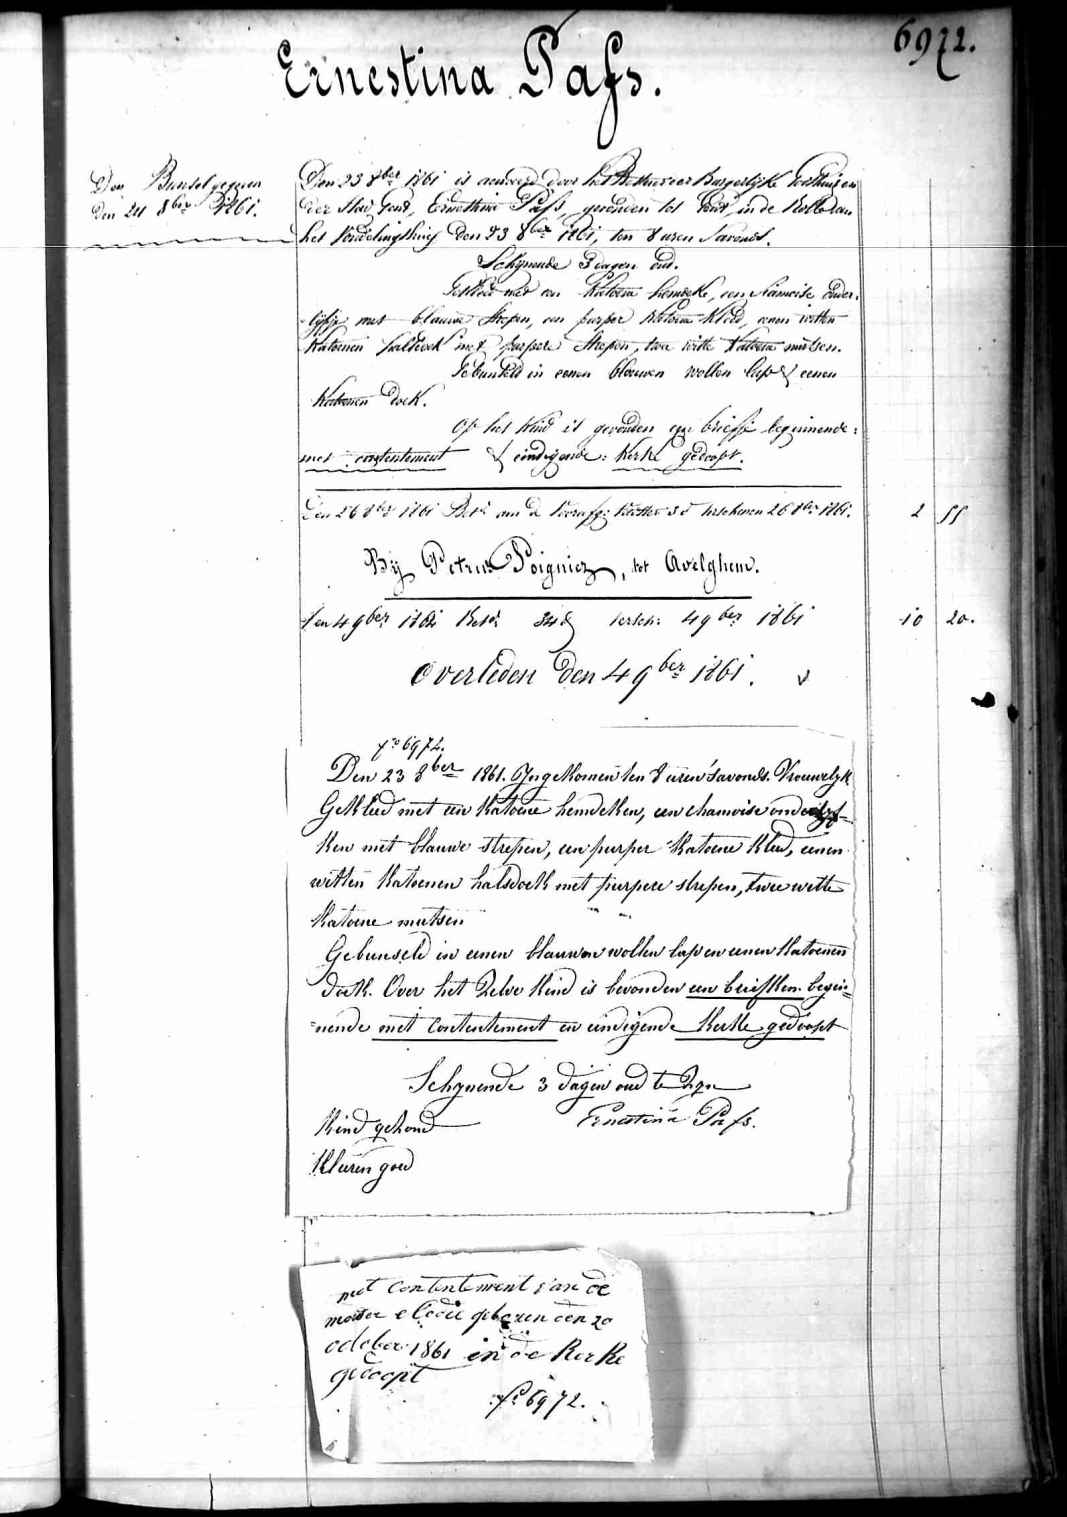 6972.
Ernestina Pass.
Den Bunsel gegeven
den 24 8ber 1861.
Den 23 8ber 1861 is door het Bestuur der Burgerlijke Godshuizen
der Stad Gent, Ernestina Pass, gevonden tot Gent, in de Rolle van
het Vondelingshuis den 23 8ber 1861, ten 8 uren 's avonds.
Schynende 3 dagen oud.
Gekleed met een Katoene hemdeke, een Siamoise onder-
lijfje met blauwe strepen, een purper Katoene Kleed, eenen witten
Katoenen halsdoek met purpere strepen, twee witte Katoene mutsen.
Gebunseld in eenen blauwen wollen lap & eenen
Katoenen doek.
Op het Kind is gevonden een briefje beginnende:
met contentement & eindigende: Kerke gedoopt.
Den 26 8ber 1861 Betd aan de 3 d verschenen 26 8ber 1861. 2 55
By Petrus Poignies, tot Avelghem.
Den 4 9ber 1861 Betd 348 versch: 4 9ber 1861 10 20.
Overleden den 4 9ber 1861. v
No 6972.
Den 23 8ber 1861. Ingekomen ten 8 uren 's avonds. Vrouwelyk
Gekleed met een Katoene hemdeken, een chamoise onderlyf-
ken met blauwe strepen, een purper Katoene Kleed, eenen
witten Katoenen halsdoek met purpere strepen, twee witte
Katoene mutsen
Gebunseld in eenen blauwen wollen lap en eenen Katoenen
doek. Over het Zelve Kind is bevonden een briefken begin-
nende met contentement en eindigende Kerke gedoopt
Schynende 3 dagen oud te Zyn
Kind gezond Ernestina Pass.
Kleeren goed
met contentement van de
moeder elodie geboren den 20
october 1861 in de Kerke
gedoopt
No 6972.